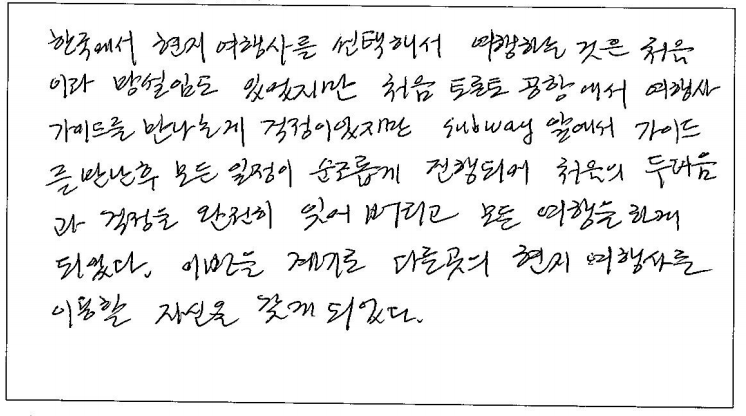 한국에서 현지 여행사를 선택해서 여행하는 것은 처음
이라 망설임도 있었지만 처음 토론토 공항에서 여행사
가이드를 만나는게 걱정이었지만 subway 앞에서 가이드
를 만난후 모든 일정이 순조롭게 진행되어 처음의 두려움
과 걱정을 완전히 잊어버리고 모든 여행을 하게
되었다. 이번을 계기로 다른곳의 현지 여행사를
이용할 자신을 갖게 되었다.